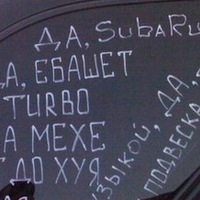 ДА, SUBARU
ДА, ЕБАШЕТ
TURBO
НА МЕХЕ
ДО ХУЯ
ЗЫКОЙ, ДА,
ПОДВЕСКА